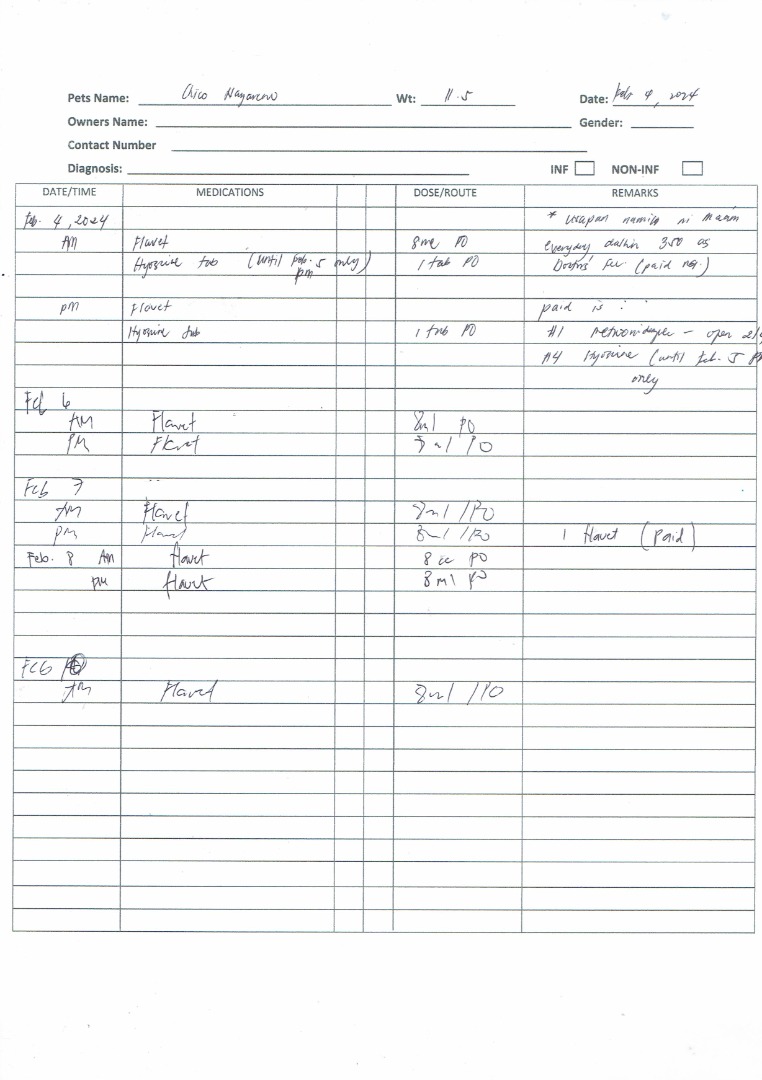 Pets Name: Wt: 11.5 Date: Feb 4, 2024
Owners Name: Gender:
Contact Number
Diagnosis: INF NON-INF
DATE/TIME MEDICATIONS DOSE/ROUTE REMARKS
Feb. 4, 2024 * Usapan namin ni Maam
AM Flavet PO everyday dalhin 350 as
tab (until Feb. 5 only) 1 tab PO Doctors' Fee (paid
pm
pm Flavet paid is :
tab 1 tab PO #1 - open
#4 (until Feb. 5
only
Feb 6
AM Flavet 8ml PO
PM Flavet ml PO
Feb 7
AM Flavet 8ml /PO
PM Flavet 8ml /PO 1 Flavet (Paid)
Feb. 8 AM Flavet 8 cc PO
pm Flavet 8 ml PO
Feb
AM Flavet 8ml /PO